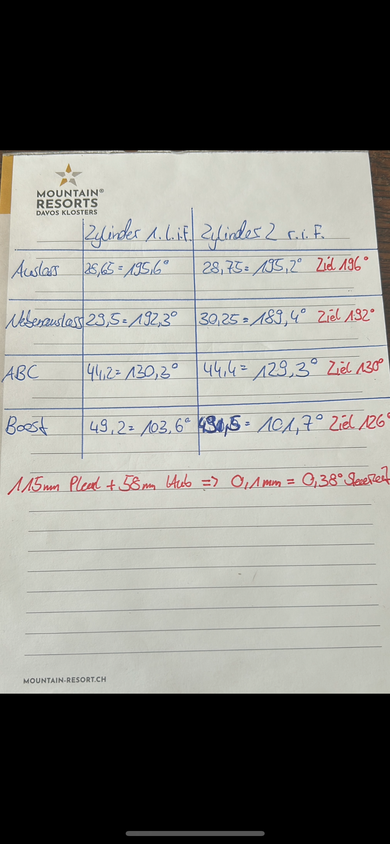 MOUNTAIN®
RESORTS
DAVOS KLOSTERS
Zylinder 1. l.i.F. Zylinder 2 r.i.F.
Auslass 28,65 = 195,6° 28,75 = 195,2° Ziel 196°
Nebenauslass 29,5 = 192,3° 30,25 = 189,4° Ziel 192°
ABC 44,2 = 130,3° 44,4 = 129,3° Ziel 130°
Boost 49,2 = 103,6° = 101,7° Ziel 126°
115mm Pleul + 58mm Hub => 0,1mm = 0,38° Steuerzeit
MOUNTAIN-RESORT.CH